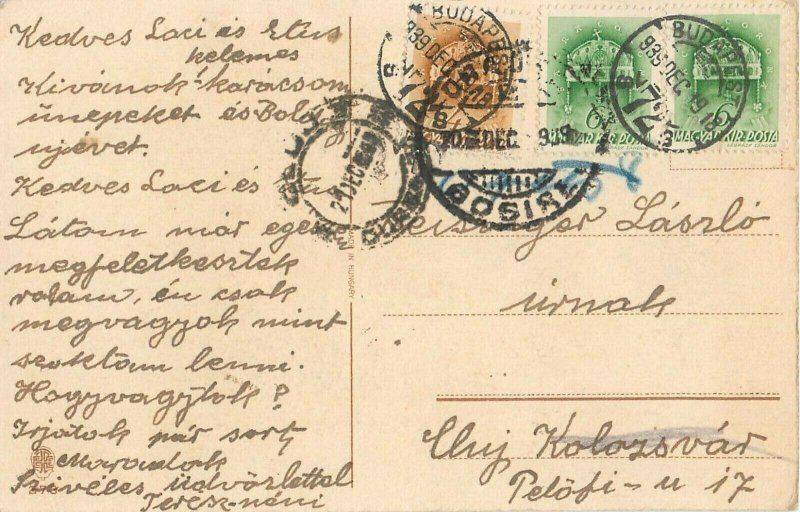 Kedves Laci és Etus
kelemes
Kivánok karácsom
ünepeket és Bolg
ujévet.
Kedves Laci és Etus
Látom már egen
megfeletkestek
rolam, én csak
megvagyok mint
szoktam lenni.
Hogyvagytok?
Irjatok pár sort,
Maradok
Szivéles üdvözlettel
Terez-néni
MADE IN HUNGARY
BUDAPEST 72
939 DEC 19
MAGYAR KIR POSTA
MAGYAR KIR POSTA
BUDAPEST 72
László
úrnak
Cluj Kolozsvár
Petőfi-u 17